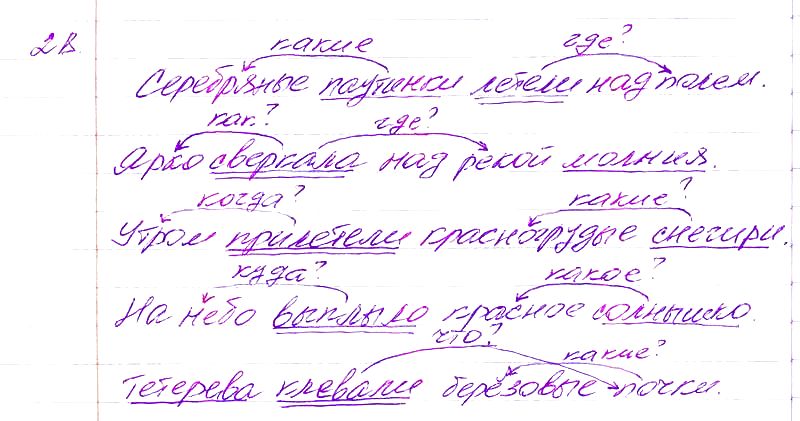 2В.
какие где?
Серебряные паутинки летели над полем.
как? где?
Ярко сверкала над рекой молния.
когда? какие?
Утром прилетели красногрудые снегири.
куда? какое?
На небо выплыло красное солнышко.
что? какие?
Тетерева клевали берёзовые почки.